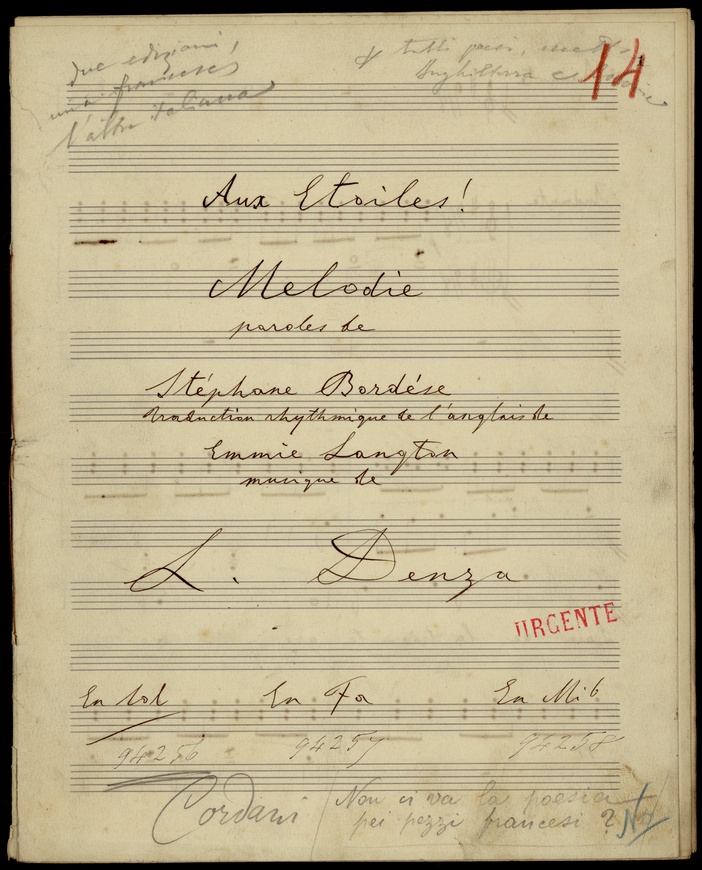 due edizioni,
una francese
l'altra italiana
tutti paesi,
Inghilterra e
14
Aux Etoiles!
Melodie
paroles de
Stéphane Bordése
traduction rhythmique de l'anglais de
Emmie Langton
musique de
L. Denza
URGENTE
En sol En Fa En Mi b
94256 94257 94258
Cordani
Non ci va la poesia
pei pezzi francesi ?